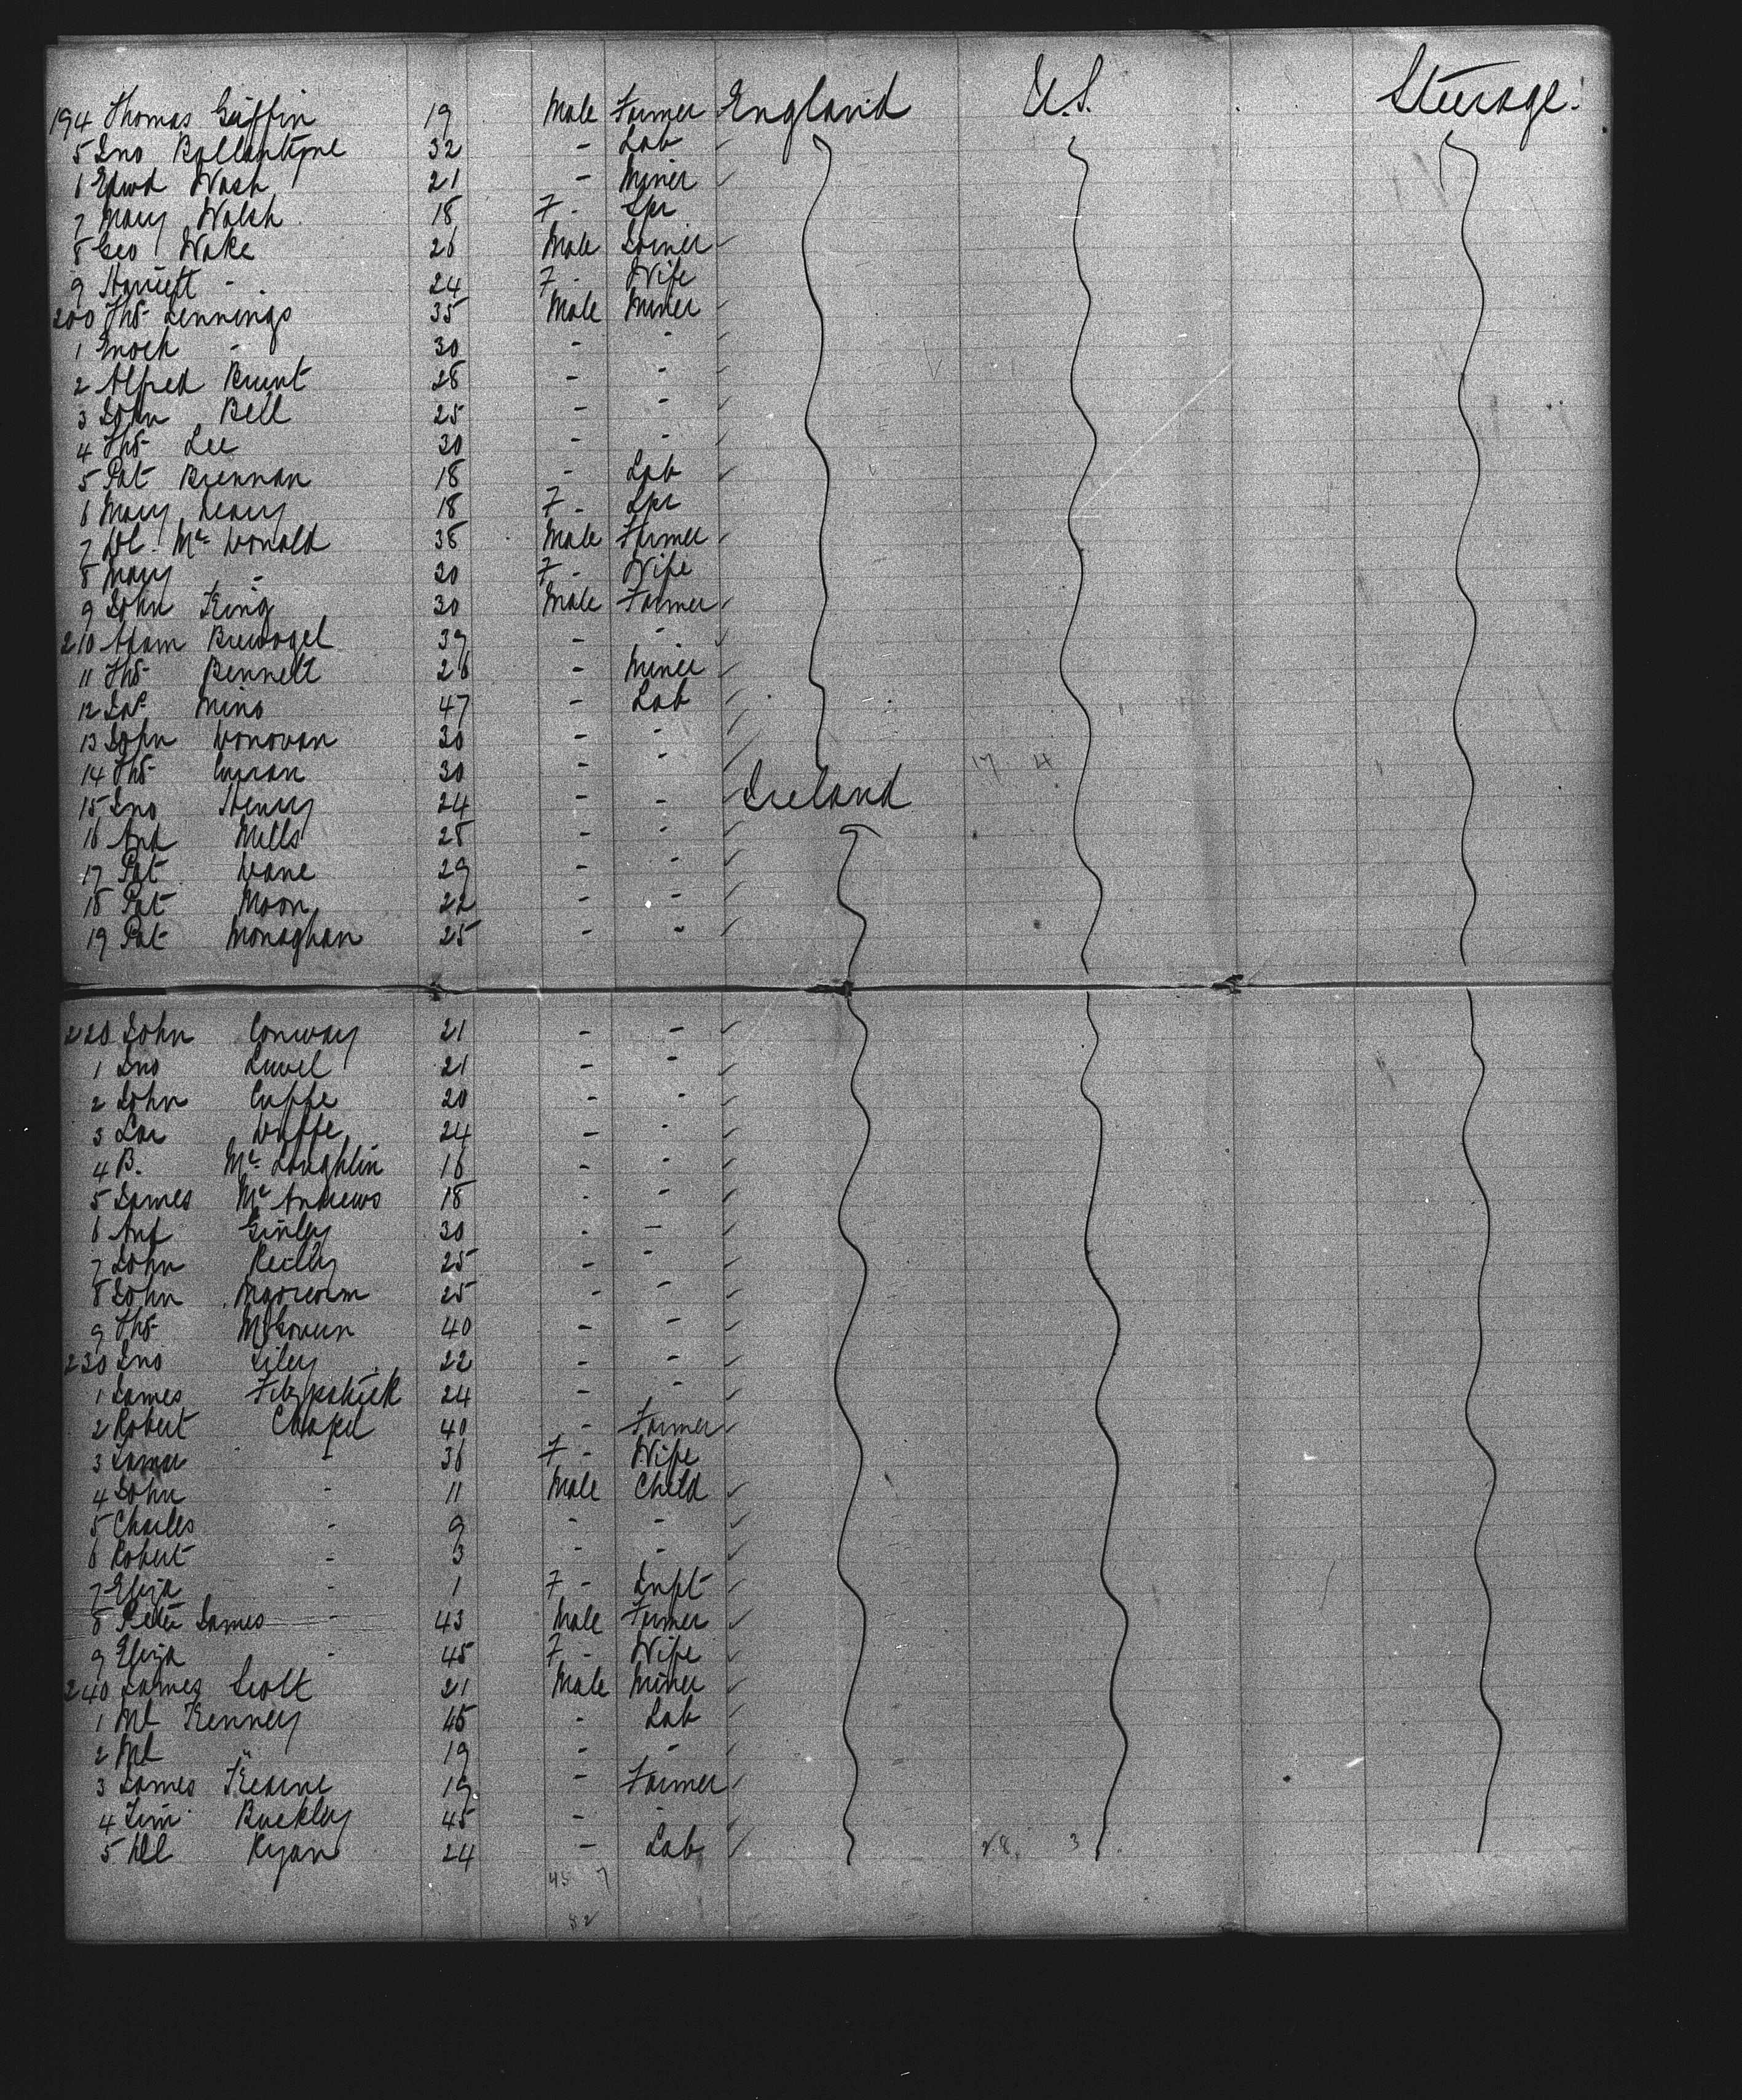 194 Thomas Griffin 19 Male Farmer England U.S. Steerage.
5 Jno Ballantyne 32 - Lab
6 Edwd Wash 21 - Miner
7 Mary Walsh 18 F - Spr
8 Geo Wake 26 Male Joiner
9 Harriett - 24 F - Wife
200 Thos Jennings 35 Male Miner
1 Enoch - 30 - -
2 Alfred Brunt 28 - -
3 John Bell 25 - -
4 Thos Lee 30 - -
5 Pat Brennan 18 - Lab
6 Mary Leary 18 F - Spr
7 Mc Donald 38 Male Farmer
8 Mary - 20 F - Wife
9 John King 30 Male Farmer
210 Adam 39 - -
11 Thos Bennett 26 - Miner
12 Mins 47 - Lab
13 John Donovan 30 - -
14 Thos Curran 30 - -
15 Jno Henry 24 - - Ireland
16 Mills 25 - -
17 Pat Dane 29 - -
18 Pat Moon 22 - -
19 Pat Monaghan 25 - -
220 John Conway 21 - -
1 Jno 21 - -
2 John Cuffe 20 - -
3 Duffe 24 - -
4 B. Mc Loughlin 16 - -
5 James Mc Andrews 18 - -
6 Ginley 30 - -
7 John Reilly 25 - -
8 John 25 - -
9 Thos McGovern 40 - -
230 Jno 22 - -
1 James Fitzpatrick 24 - -
2 Robert Cooper 40 - Farmer
3 - 36 F - Wife
4 John - 11 Male Child
5 Charles - 9 - -
6 Robert - 3 - -
7 Eliza - 1 F - Inft
8 Peter James - 43 Male Farmer
9 Eliza - 45 F - Wife
240 James Scott 21 Male Miner
1 Ml Kenney 45 - Lab
2 Ml " 19 - -
3 James Kearne 19 - Farmer
4 Tim Buckley 45 - -
5 Ryan 24 - Lab 28 3
45 7
52